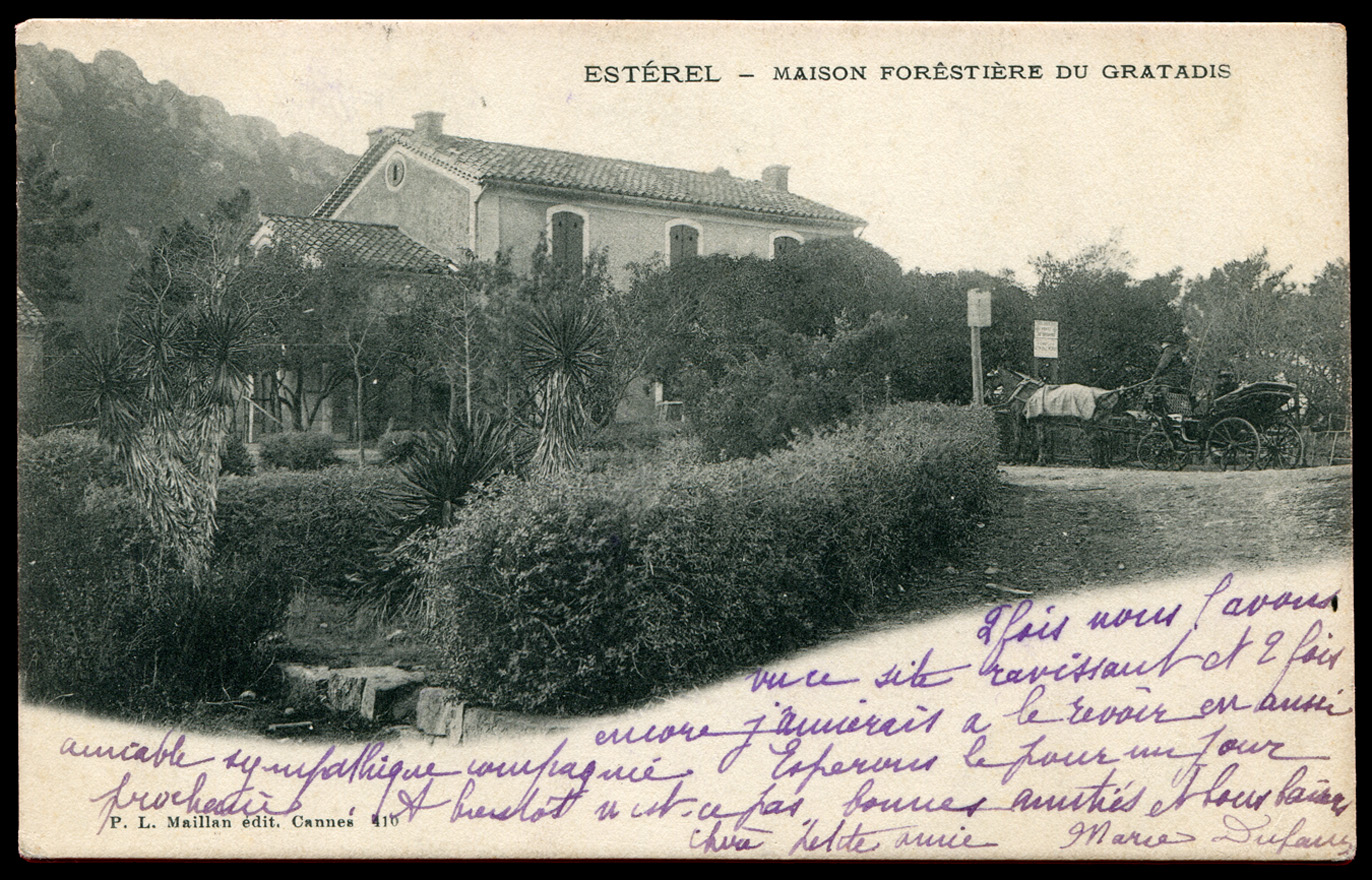 ESTÉREL – MAISON FORÊSTIÈRE DU GRATADIS
2 fois nous l'avons
vu ce site ravissant et 2 fois
encore j'aimerais a le revoir en aussi
amicable sympathique compagnie. Esperons le pour un jour
prochain. A bientôt n'est-ce pas bonnes amitiés et bons baisers
chère petite amie Marie
P. L. Maillan édit. Cannes 410